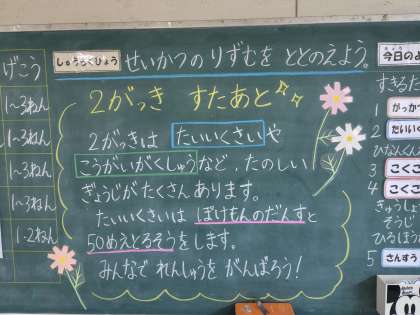 げこう
1~3ねん
1~3ねん
1~3ねん
1~3ねん
1~2ねん
せいかつの りずむを ととのえよう。
2がっき すたあと
2がっきは たいいくさいや
こうがいがくしゅうなど、たのしい
ぎょうじがたくさんあります。
たいいくさいは ぽけもんのだんすと
50めえとるそうをします。
みんなで れんしゅうを がんばろう!
今日のよ
するた
1
2 たいいく
ひなんくん
3 こくご
4 こくご
きゅうしょ
そうじ
ひるほう
5 さんすう